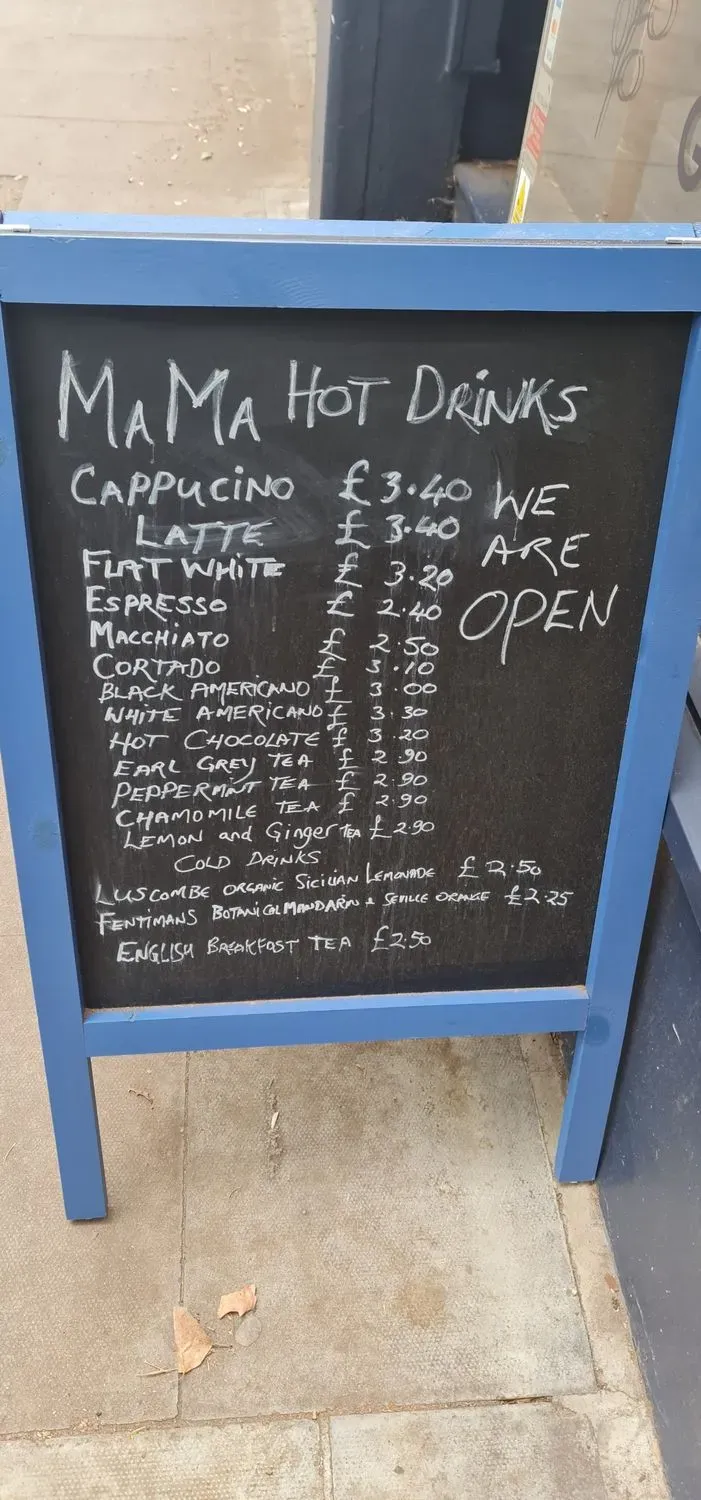 MAMA HOT DRINKS
CAPPUCINO £3.40
LATTE £3.40
FLAT WHITE £ 3.20
ESPRESSO £ 2.40
MACCHIATO £ 2.50
CORTADO £ 3.10
BLACK AMERICANO £ 3.00
WHITE AMERICANO £ 3.30
HOT CHOCOLATE £ 3.20
EARL GREY TEA £ 2.90
PEPPERMINT TEA £ 2.90
CHAMOMILE TEA £ 2.90
LEMON and Ginger TEA £2.90
COLD DRINKS
LUSCOMBE ORGANIC SICILIAN LEMONADE £2.50
FENTIMANS BOTANICAL MANDARIN & SEVILLE ORANGE £2.25
ENGLISH BREAKFAST TEA £2.50
WE
ARE
OPEN